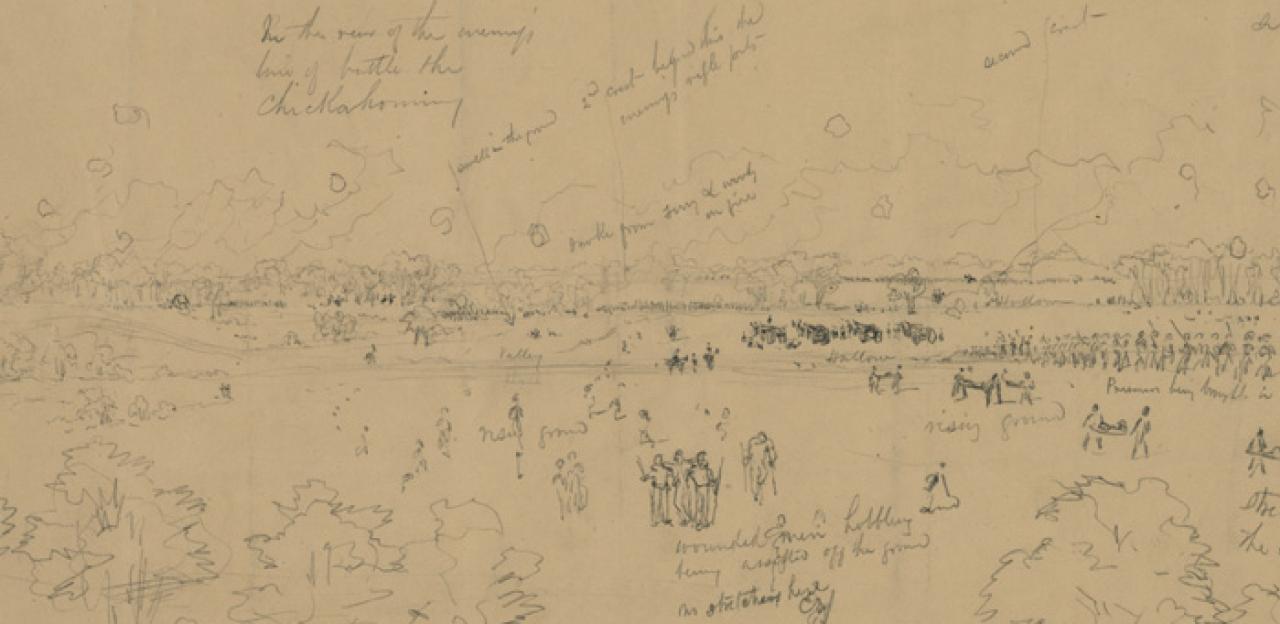 In the rear of the enemy's
line of battle the
Chickahominy
swell in the ground
2nd crest behind this the
enemys rifle pits
second crest
smoke from
woods
on fire
Hollow
Valley
Hollow
Prisoners being brought in
rising ground
rising ground
wounded men hobbling
being assisted off the ground
no stretchers here
the